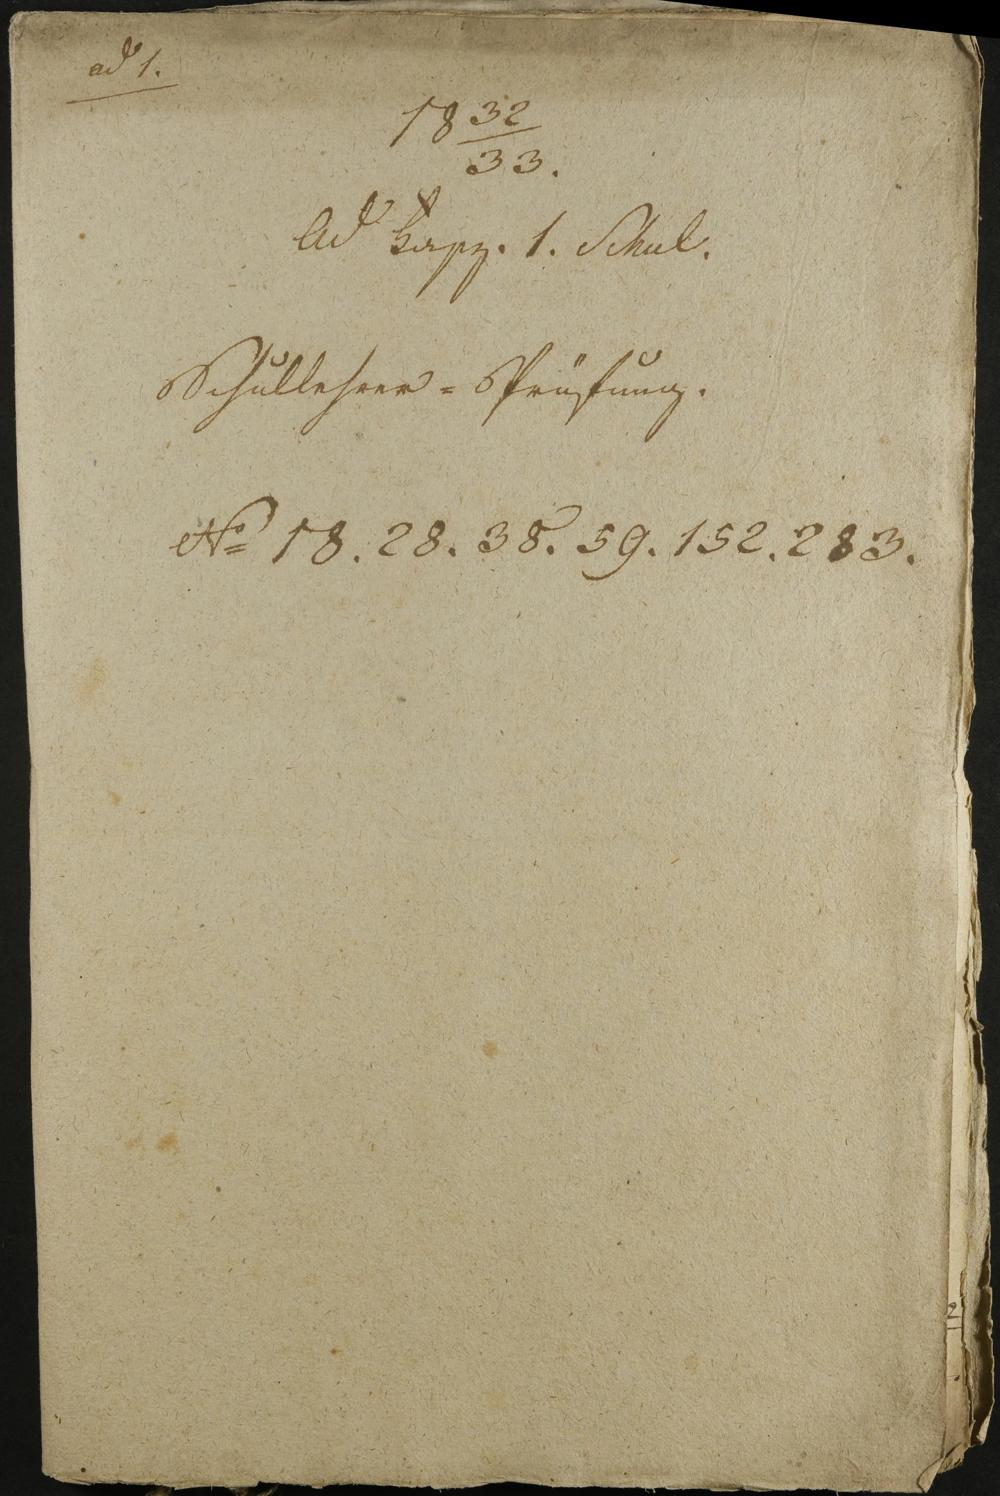 ad 1.
18 32/33.
Ad 1. Schul.
Schullehrer = Prüfung.
No 18. 28. 38. 59. 152. 283.
2